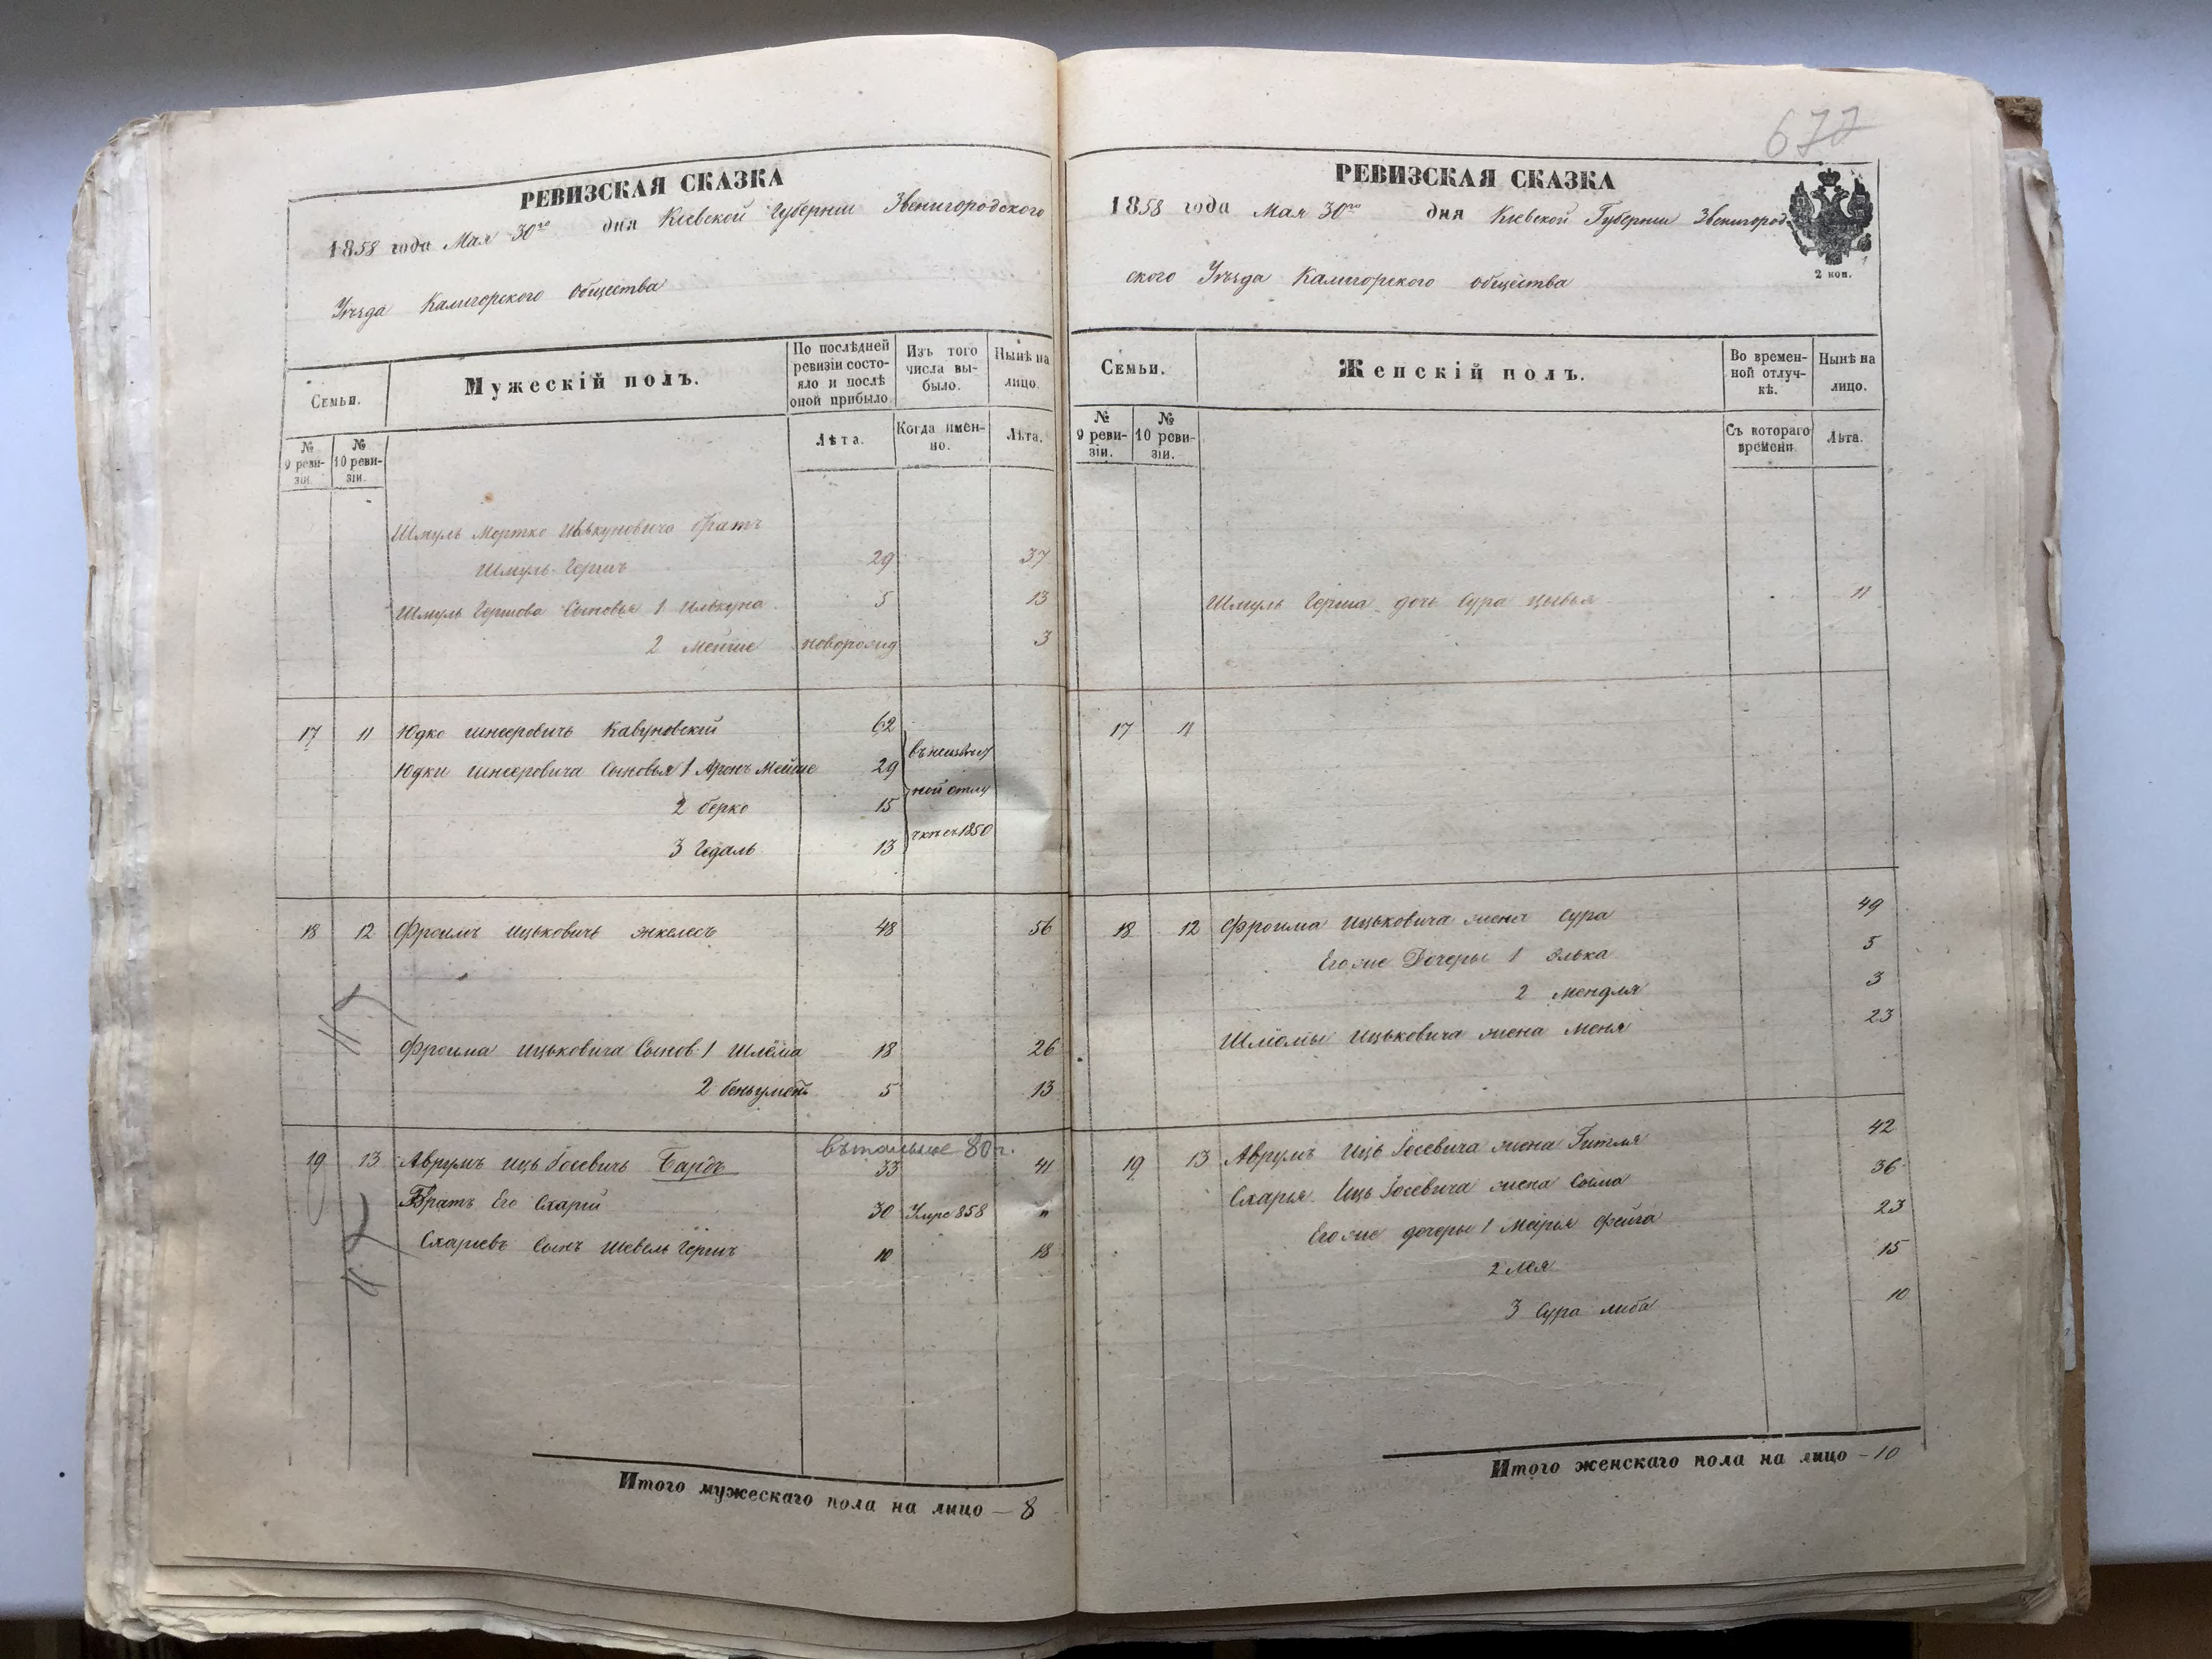 677
РЕВИЗСКАЯ СКАЗКА
1858 года Мая 30го дня Кіевской Губерніи Звенигородского
Уѣзда Калигорского общества
Семьи.
Мужескій полъ.
По послѣдней ревизіи состояло и послѣ оной прибыло
Изъ того числа выбыло.
Нынѣ на лицо.
№ 9 ревизіи.
№ 10 ревизіи.
Лѣта.
Когда именно.
Лѣта.
Шмуль Мортко Ицькуновича братъ
Шмуль Гершъ 29 37
Шмуль Гершова Сыновья 1 Ицькуна 5 13
2 Мейше новорожд 3
17 11 Юдко Шнееровичъ Кавуновскій 62
Юдки Шнееровича Сыновья 1 Аронъ Мейше 29
2 берко 15
3 Гедаль 13
въ неизвѣст
ной отлу
чкѣ съ 1850
18 12 Фроимъ Ицьковичъ Янкелесъ 48 56
Фроима Ицьковича Сынов 1 Шлёма 18 26
2 беньуменъ 5 13
19 13 Аврумъ Иць Іосевичъ Бардъ 33 41
80 г.
Братъ Его Схарій 30 Умре 858 "
Схаріевъ Сынъ Шевель Гершъ 10 18
Итого мужескаго пола на лицо — 8
РЕВИЗСКАЯ СКАЗКА
1858 года Мая 30го дня Кіевской Губерніи Звенигород
ского Уѣзда Калигорского общества
2 коп.
Семьи.
Женскій полъ.
Во временной отлучкѣ.
Нынѣ на лицо.
№ 9 ревизіи.
№ 10 ревизіи.
Съ котораго времени
Лѣта.
Шмуль Герша дочь Сура Цывья 11
17 11
18 12 Фроима Ицьковича жена Сура 49
Его же Дочеры 1 Элька 5
2 Мендля 3
Шліомы Ицьковича жена Меня 23
19 13 Аврумъ Ицъ Іосевича жена Гитля 42
Схарія Ицъ Іосевича жена Сосма 36
Его же дочеры 1 Марья Фейга 23
2 Лея 15
3 Сура Либа 10
Итого женскаго пола на лицо — 10